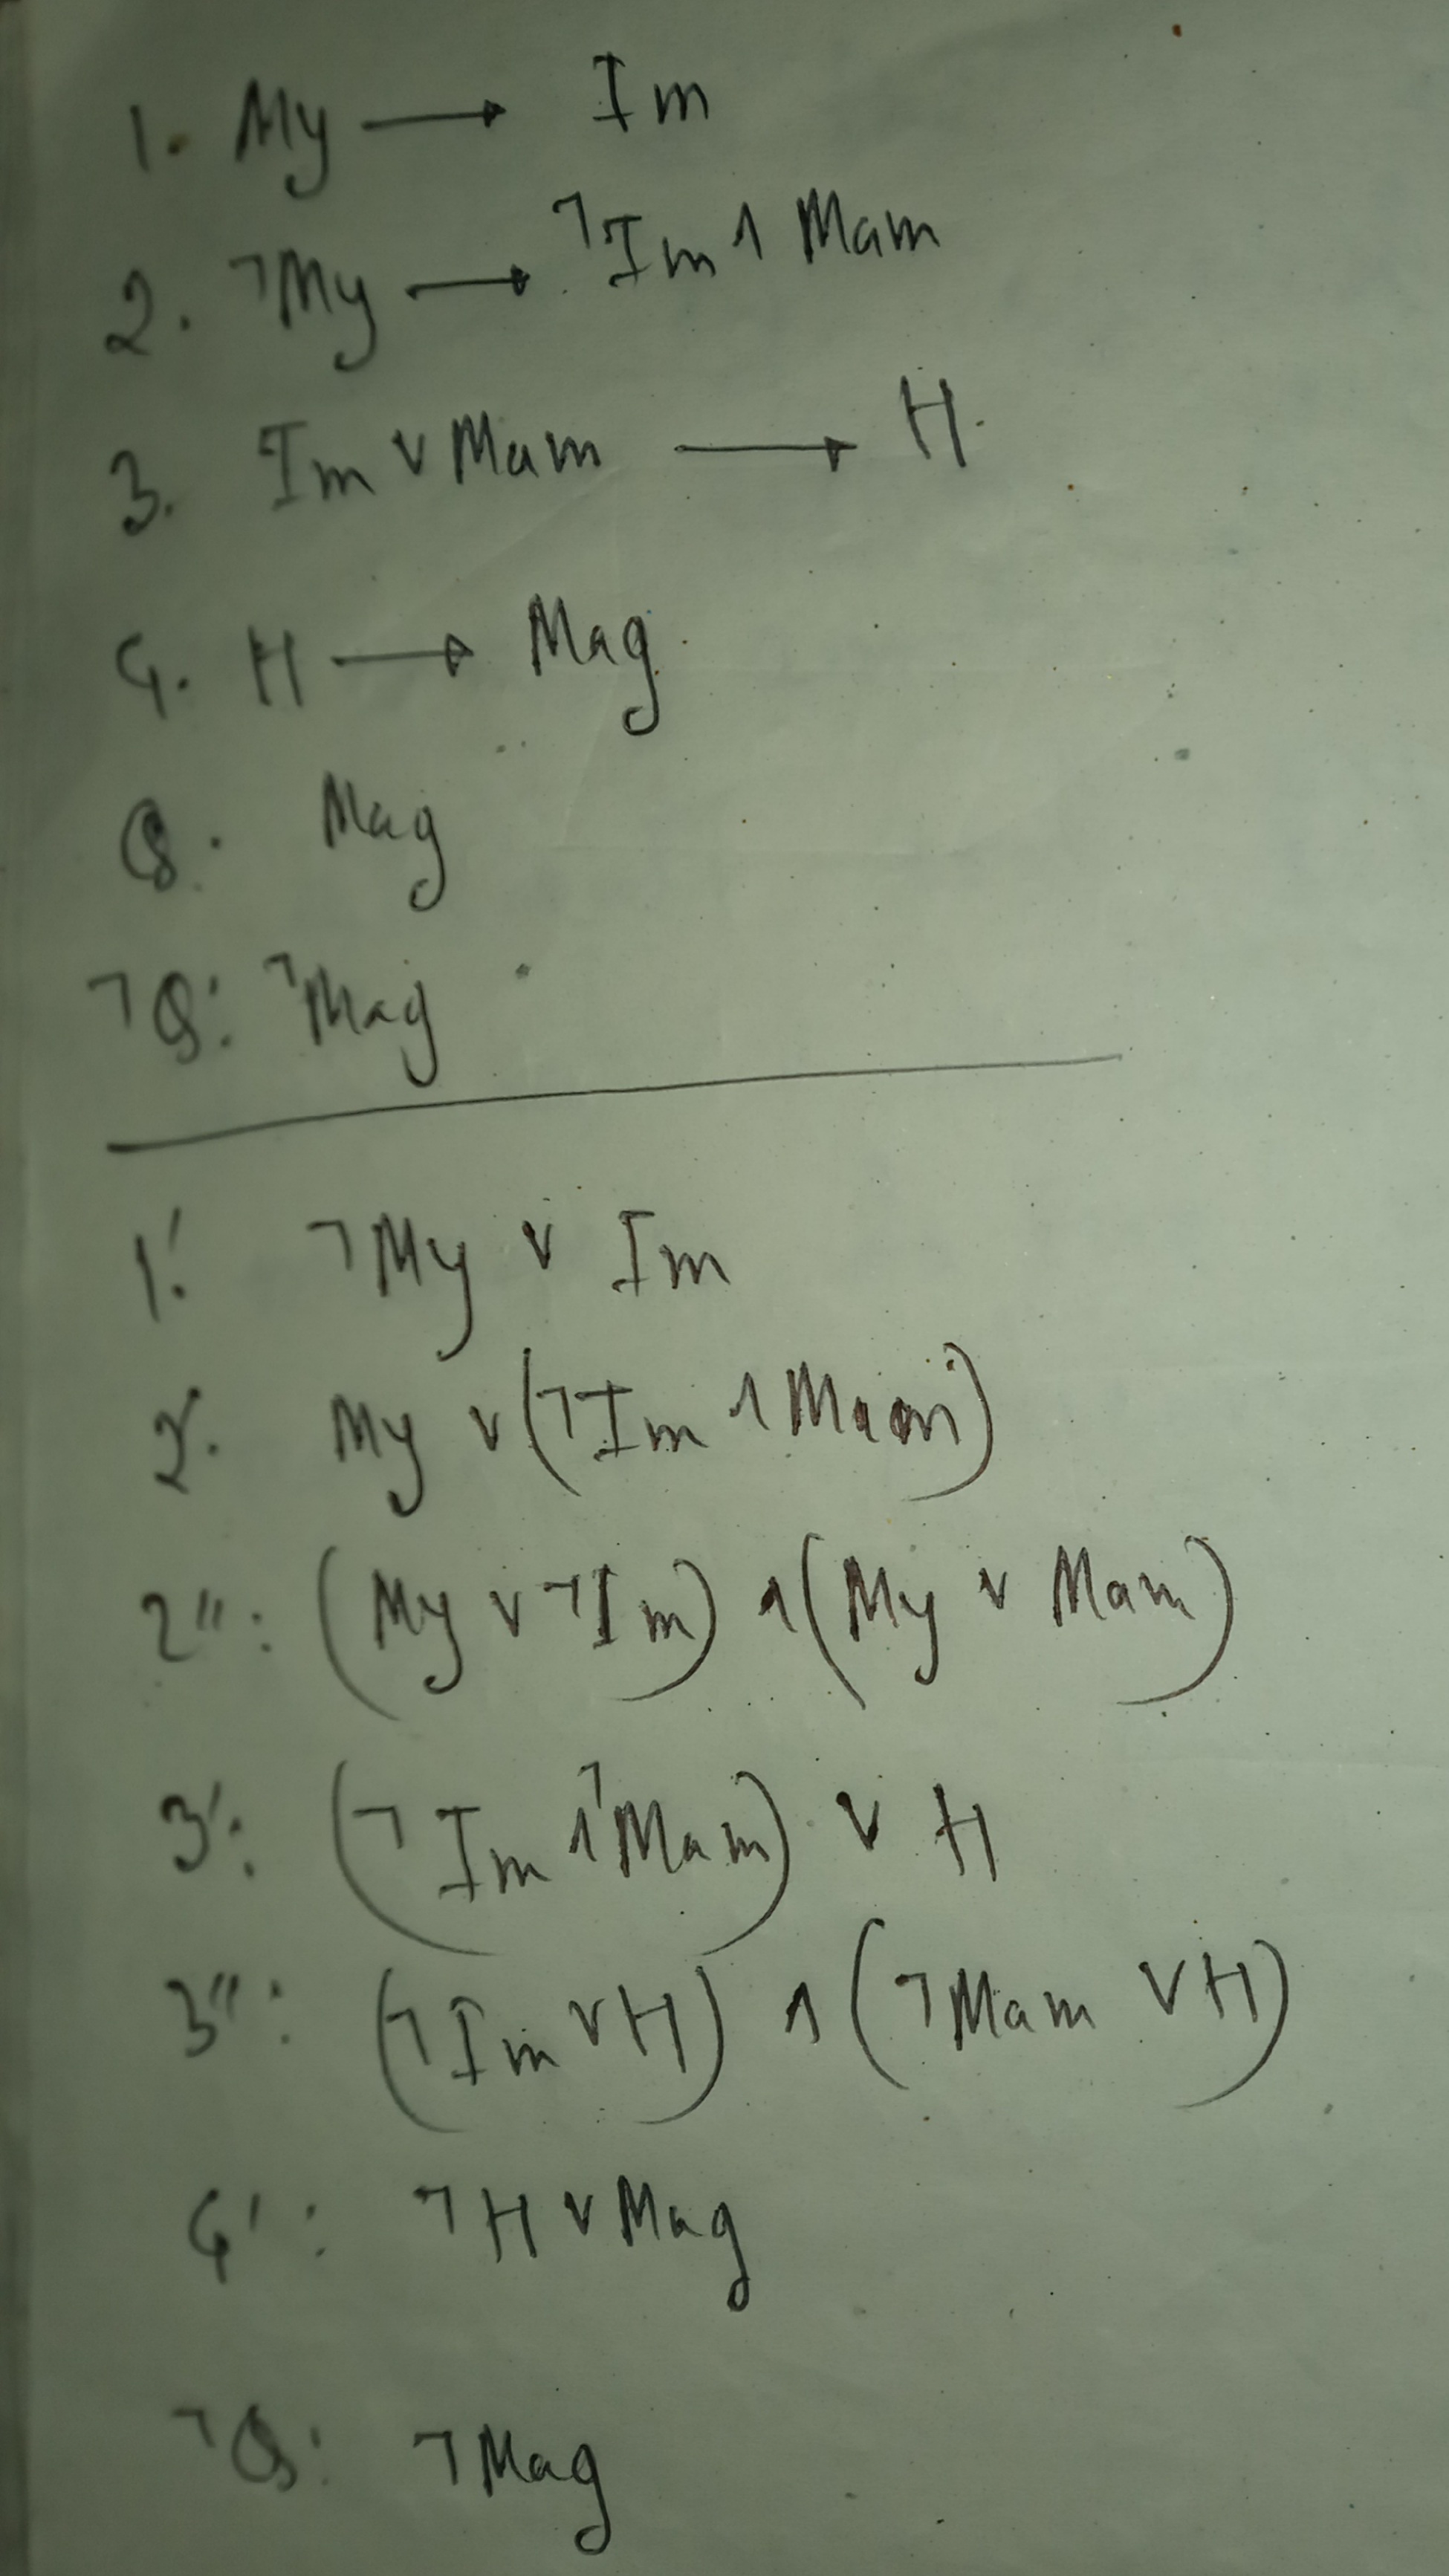 1. My → Im
2. ¬My → ¬Im ∧ Mam
3. Im ∨ Mam → H.
4. H → Mag.
Q. Mag
¬Q: ¬Mag
1': ¬My ∨ Im
2'. My ∨ (¬Im ∧ Mam)
2'': (My ∨ ¬Im) ∧ (My ∨ Mam)
3': (¬Im ∧ ¬Mam) ∨ H
3'': (¬Im ∨ H) ∧ (¬Mam ∨ H)
4': ¬H ∨ Mag
¬Q: ¬Mag